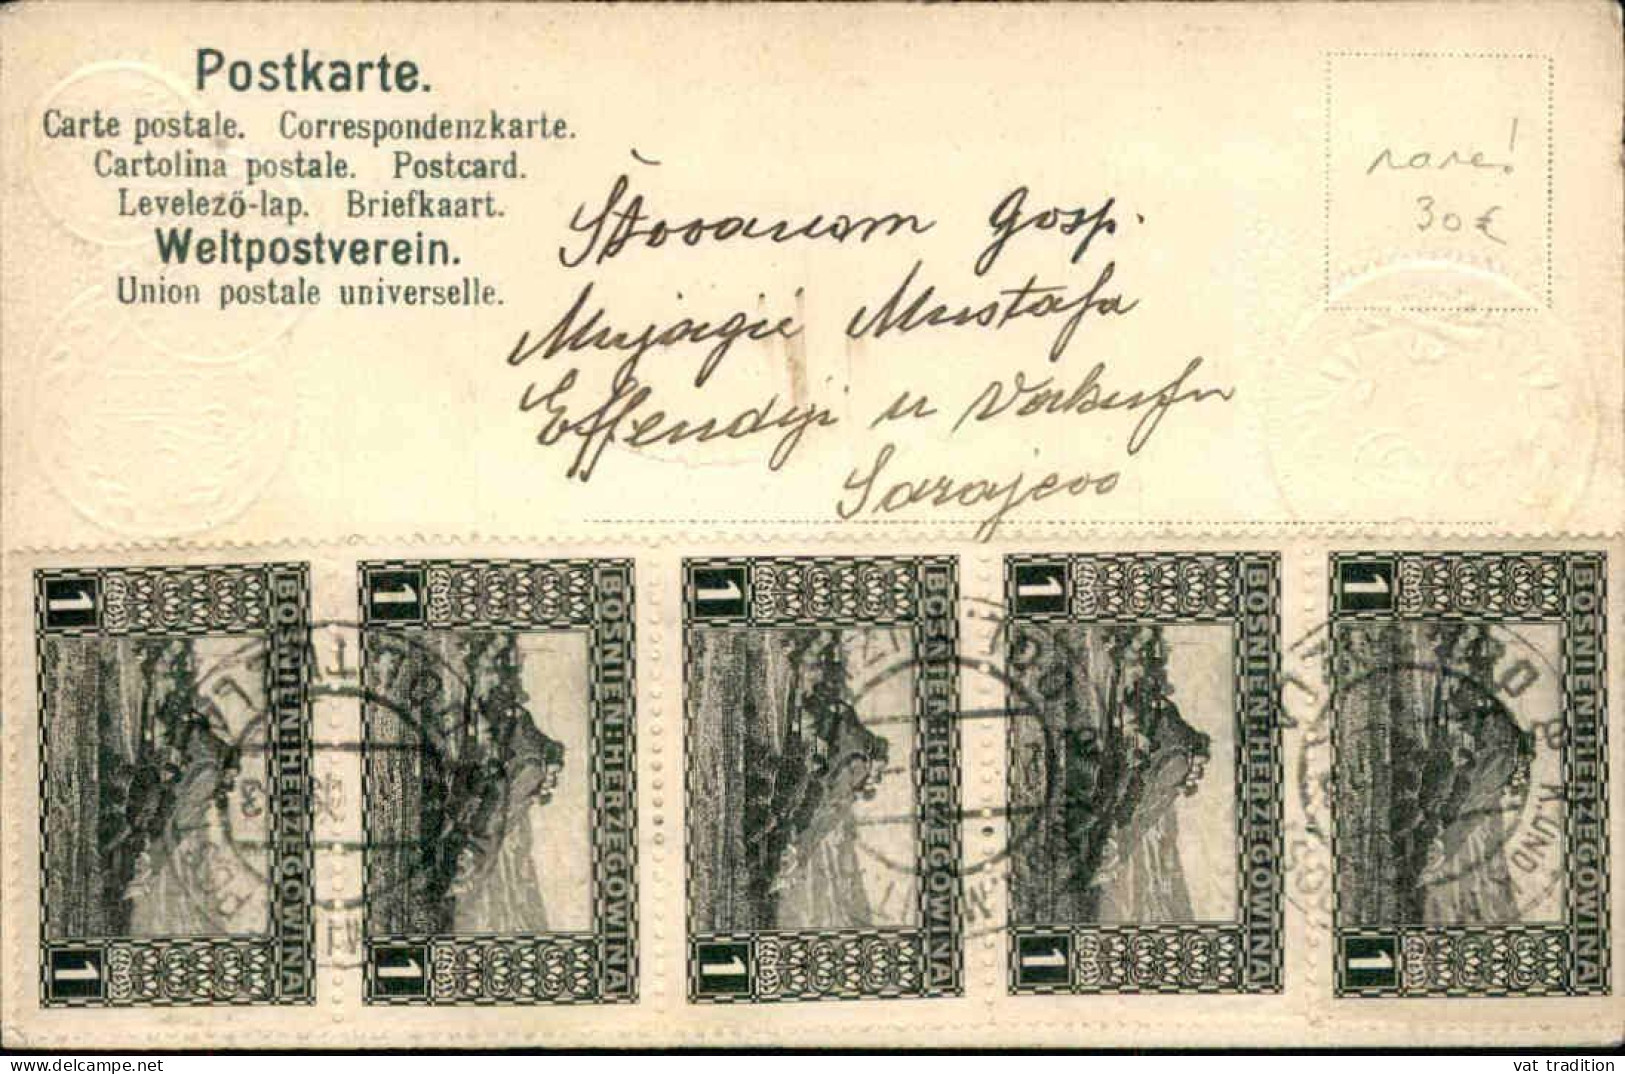 Postkarte.
Carte postale. Correspondenzkarte.
Cartolina postale. Postcard.
Levelező-lap. Briefkaart.
Weltpostverein.
Union postale universelle.
rare!
30€
Štovanom Gosp.
Mujagić Mustafa
Effendiji u Vakufu
Sarajevo
1 BOSNIEN HERZEGOWINA 1
1 BOSNIEN HERZEGOWINA 1
1 BOSNIEN HERZEGOWINA 1
1 BOSNIEN HERZEGOWINA 1
1 BOSNIEN HERZEGOWINA 1
K.UND K.
vat tradition